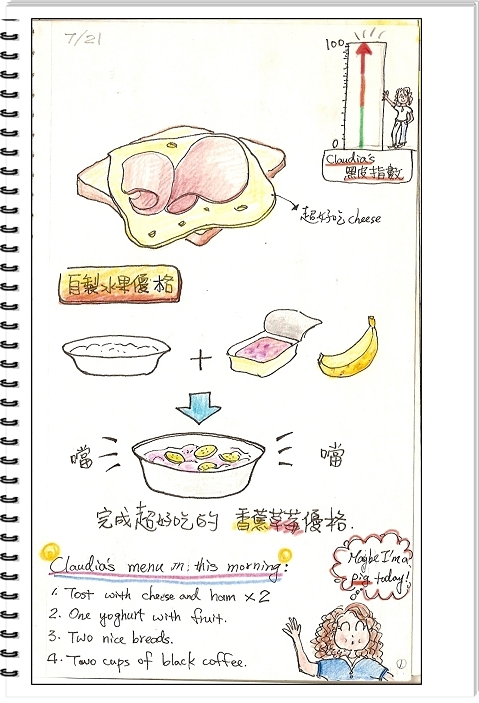 7/21
100
0
Claudia's
黑皮指數
超好吃 cheese
自製水果優格
+
噹
噹
完成超好吃的 香蕉草莓優格.
Claudia's menu in this morning:
1. Tost with cheese and ham x2
2. One yoghurt with fruit.
3. Two nice breads.
4. Two cups of black coffee.
Maybe I'm a
pig today!
1